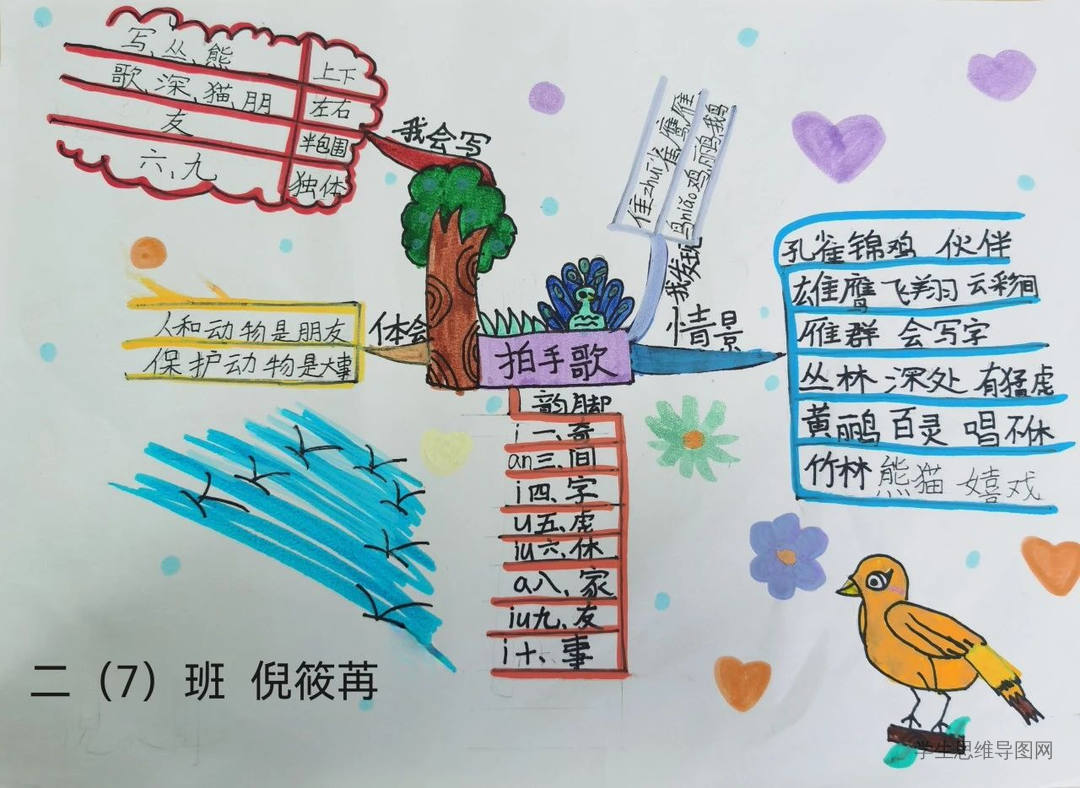 我会写
写、丛、熊 上下
歌、深、猫、朋 左右
友 半包围
六、九 独体
体会
人和动物是朋友
保护动物是大事
拍手歌
我发现
隹zhuī雀、鹰、雁
鸟niǎo鸡、鹂、鹅
情景
孔雀锦鸡 伙伴
雄鹰飞翔 云彩间
雁群 会写字
丛林 深处 有猛虎
黄鹂百灵 唱不休
竹林 熊猫 嬉戏
韵脚
i 一、奇
an三、间
i 四、字
u五、虎
iu六、休
a八、家
iu九、友
i 十、事
二（7）班 倪筱苒
学生思维导图网